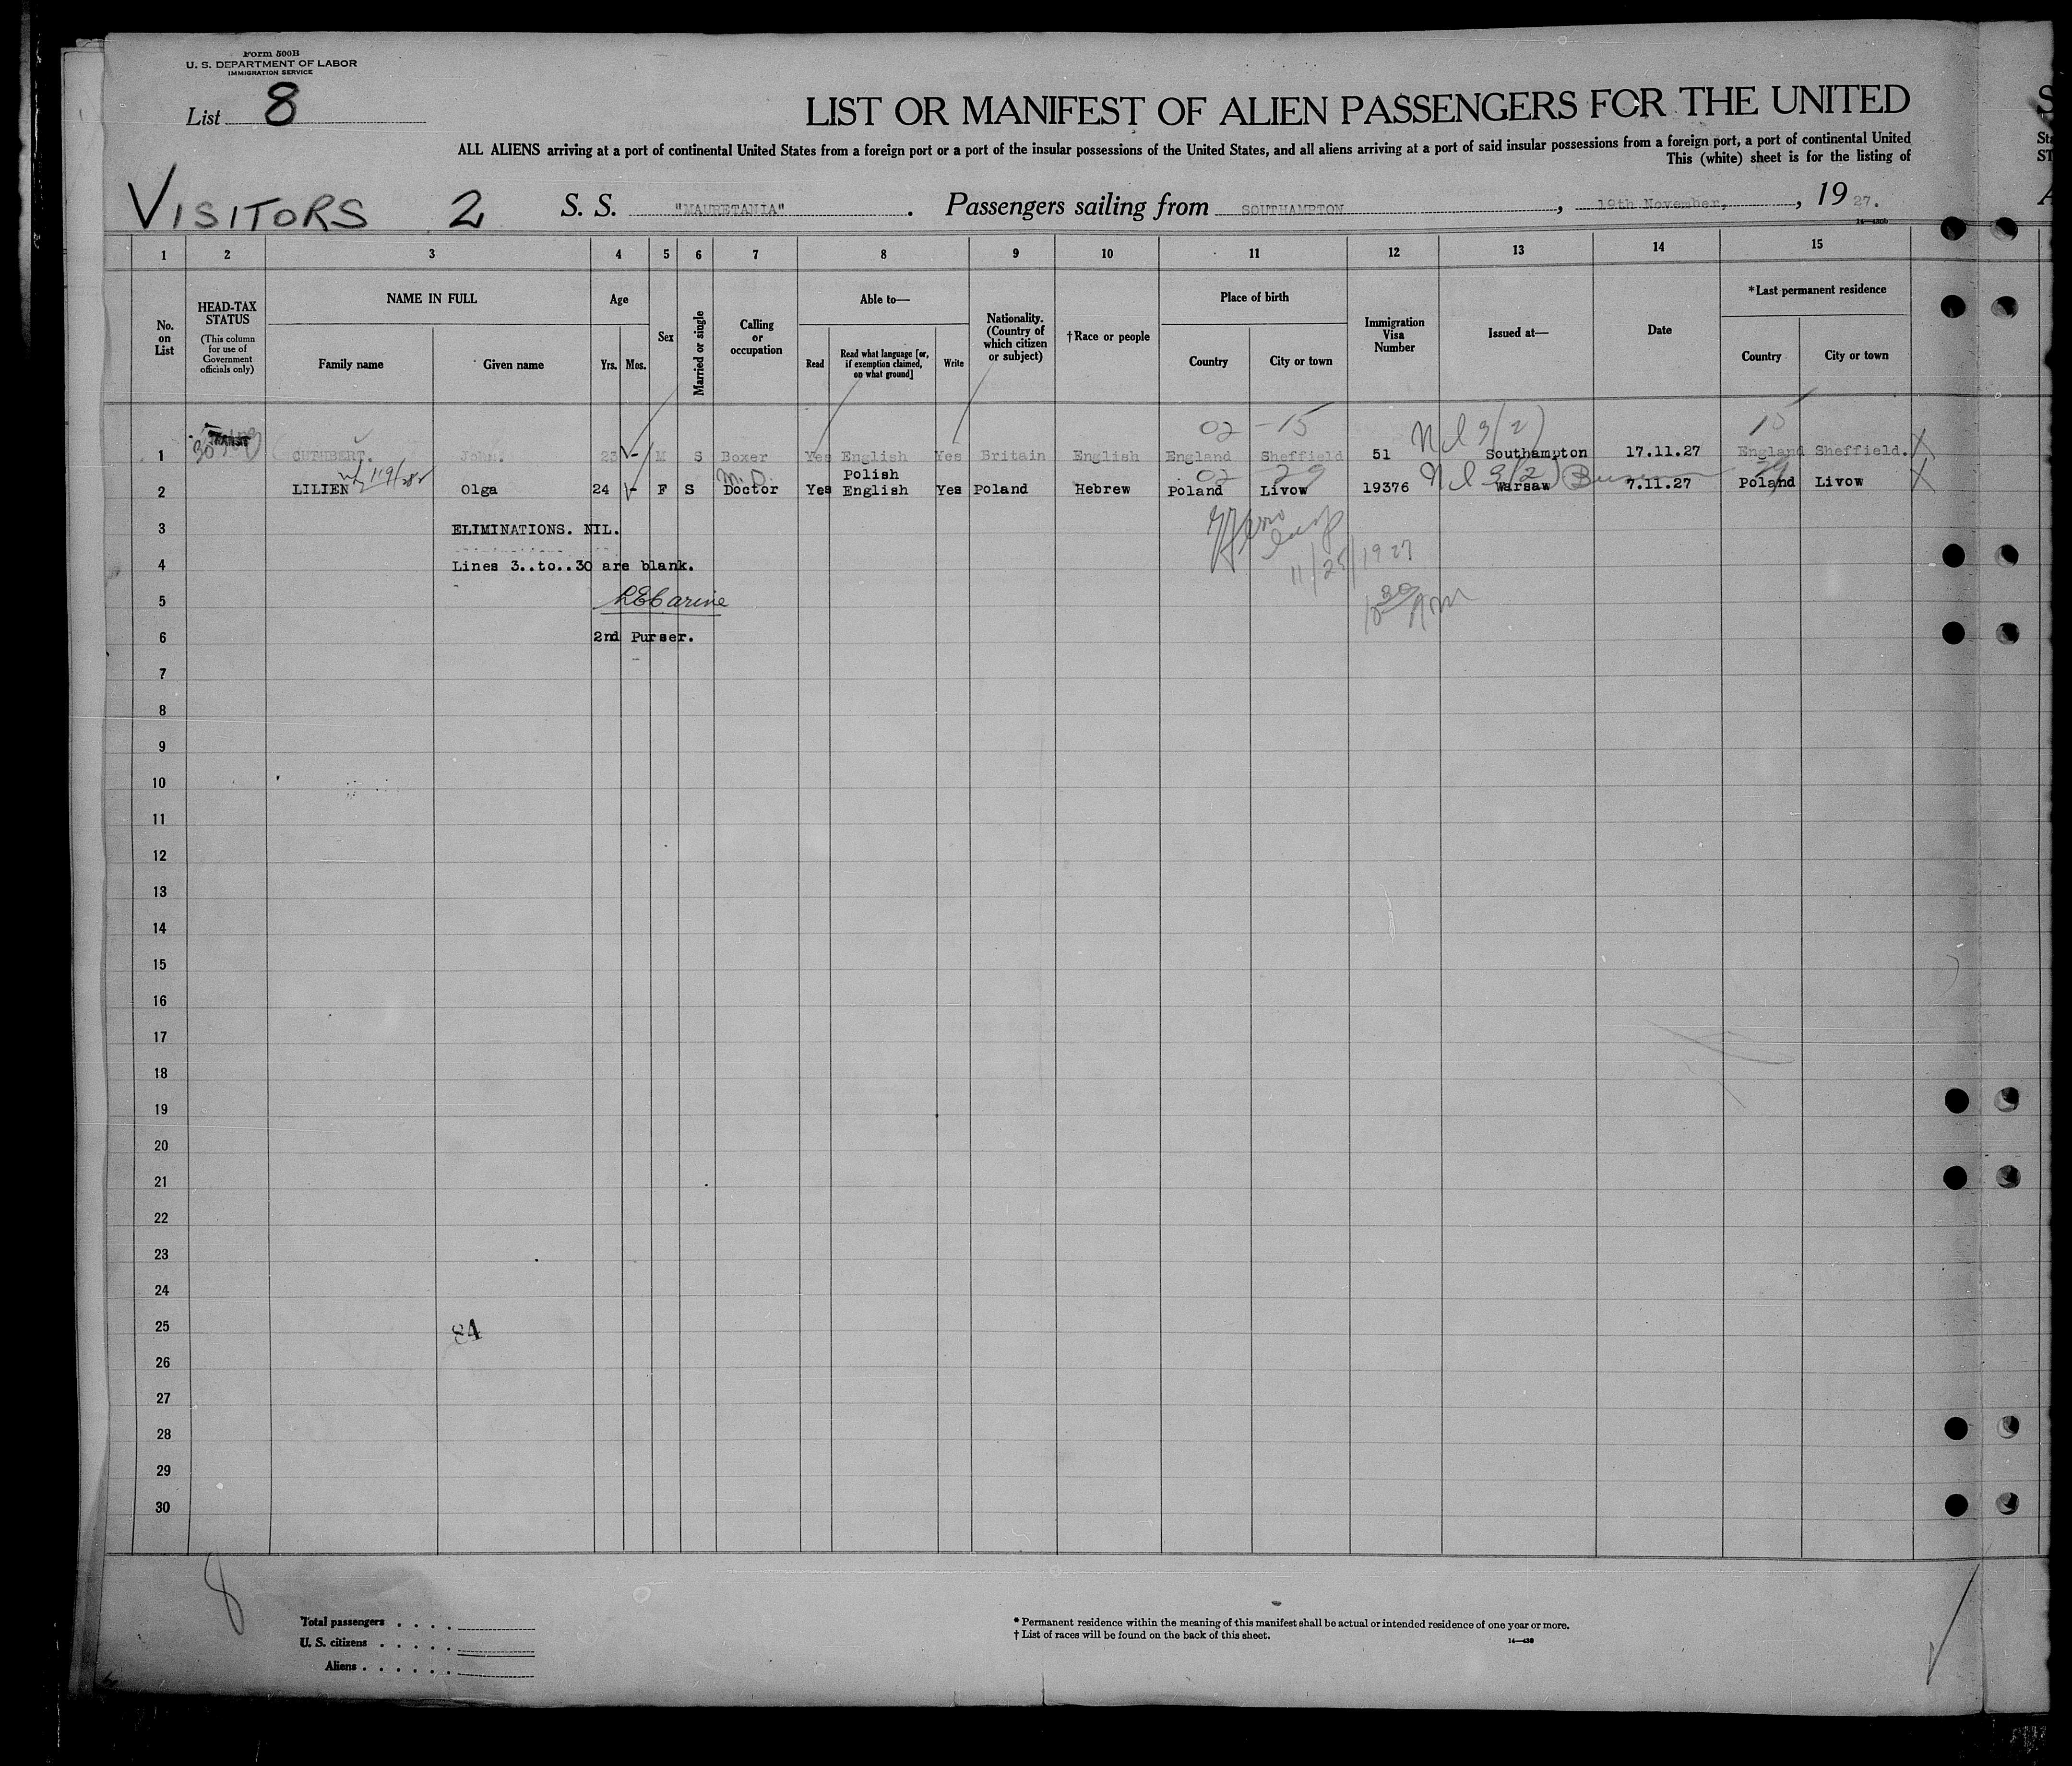 Form 500B
U. S. DEPARTMENT OF LABOR
IMMIGRATION SERVICE
List 8
LIST OR MANIFEST OF ALIEN PASSENGERS FOR THE UNITED
ALL ALIENS arriving at a port of continental United States from a foreign port or a port of the insular possessions of the United States, and all aliens arriving at a port of said insular possessions from a foreign port, a port of continental United
This (white) sheet is for the listing of
VISITORS 2 S. S. "MAURETANIA". Passengers sailing from SOUTHAMPTON, 19th November, 1927.
14—430b
1 2 3 4 5 6 7 8 9 10 11 12 13 14 15
No. on List
HEAD-TAX STATUS
(This column for use of Government officials only)
NAME IN FULL
Family name Given name
Age
Yrs. Mos.
Sex
Married or single
Calling or occupation
Able to—
Read
Read what language [or, if exemption claimed, on what ground]
Write
Nationality. (Country of which citizen or subject)
†Race or people
Place of birth
Country City or town
Immigration Visa Number
Issued at—
Date
*Last permanent residence
Country City or town
02 - 15 15
1 TRANSIT CUTHBERT. John. 23 - M S Boxer Yes English Yes Britain English England Sheffield 51 Southampton 17.11.27 England Sheffield.
M.D. Polish 02 29 29
2 LILIEN Olga 24 - F S Doctor Yes English Yes Poland Hebrew Poland Livow 19376 Warsaw 7.11.27 Poland Livow
3 ELIMINATIONS. NIL.
4 Lines 3..to..30 are blank.
11/25/1927
5
6 2nd Purser.
7
8
9
10
11
12
13
14
15
16
17
18
19
20
21
22
23
24
25 84
26
27
28
29
30
8
Total passengers
U. S. citizens
Aliens
* Permanent residence within the meaning of this manifest shall be actual or intended residence of one year or more.
† List of races will be found on the back of this sheet.
14—430